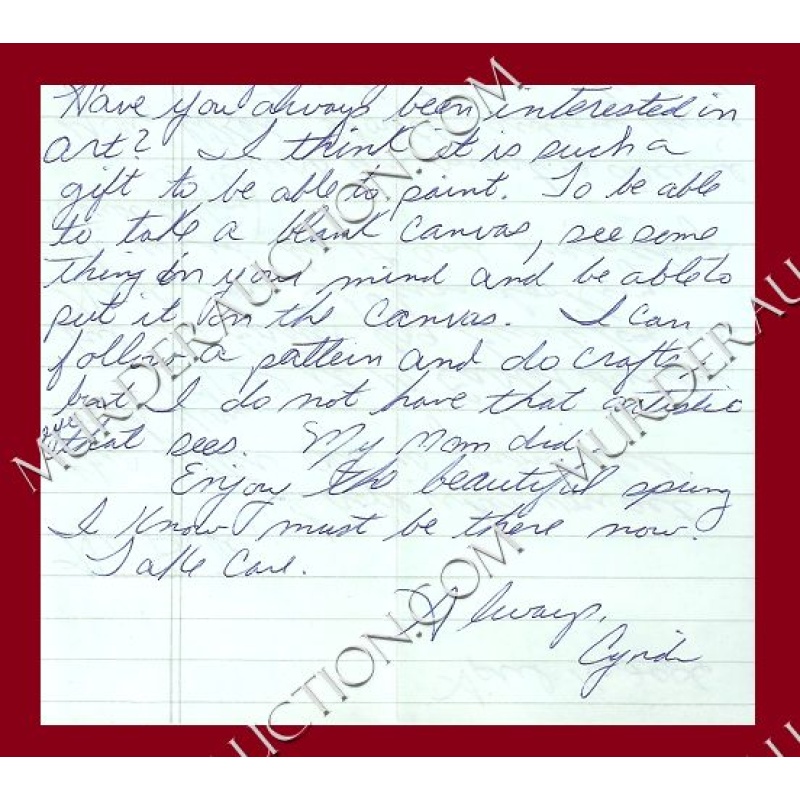 Have you always been interested in
art? I think it is such a
gift to be able to paint. To be able
to take a blank canvas, see some
thing in your mind and be able to
put it on the canvas. I can
follow a pattern and do crafts
but I do not have that artistic
eye
that sees. My Mom did.
Enjoy the beautiful spring
I know must be there now.
Take Care.
Always,
MURDERAUCTION.COM
MURDERAUCTION.COM